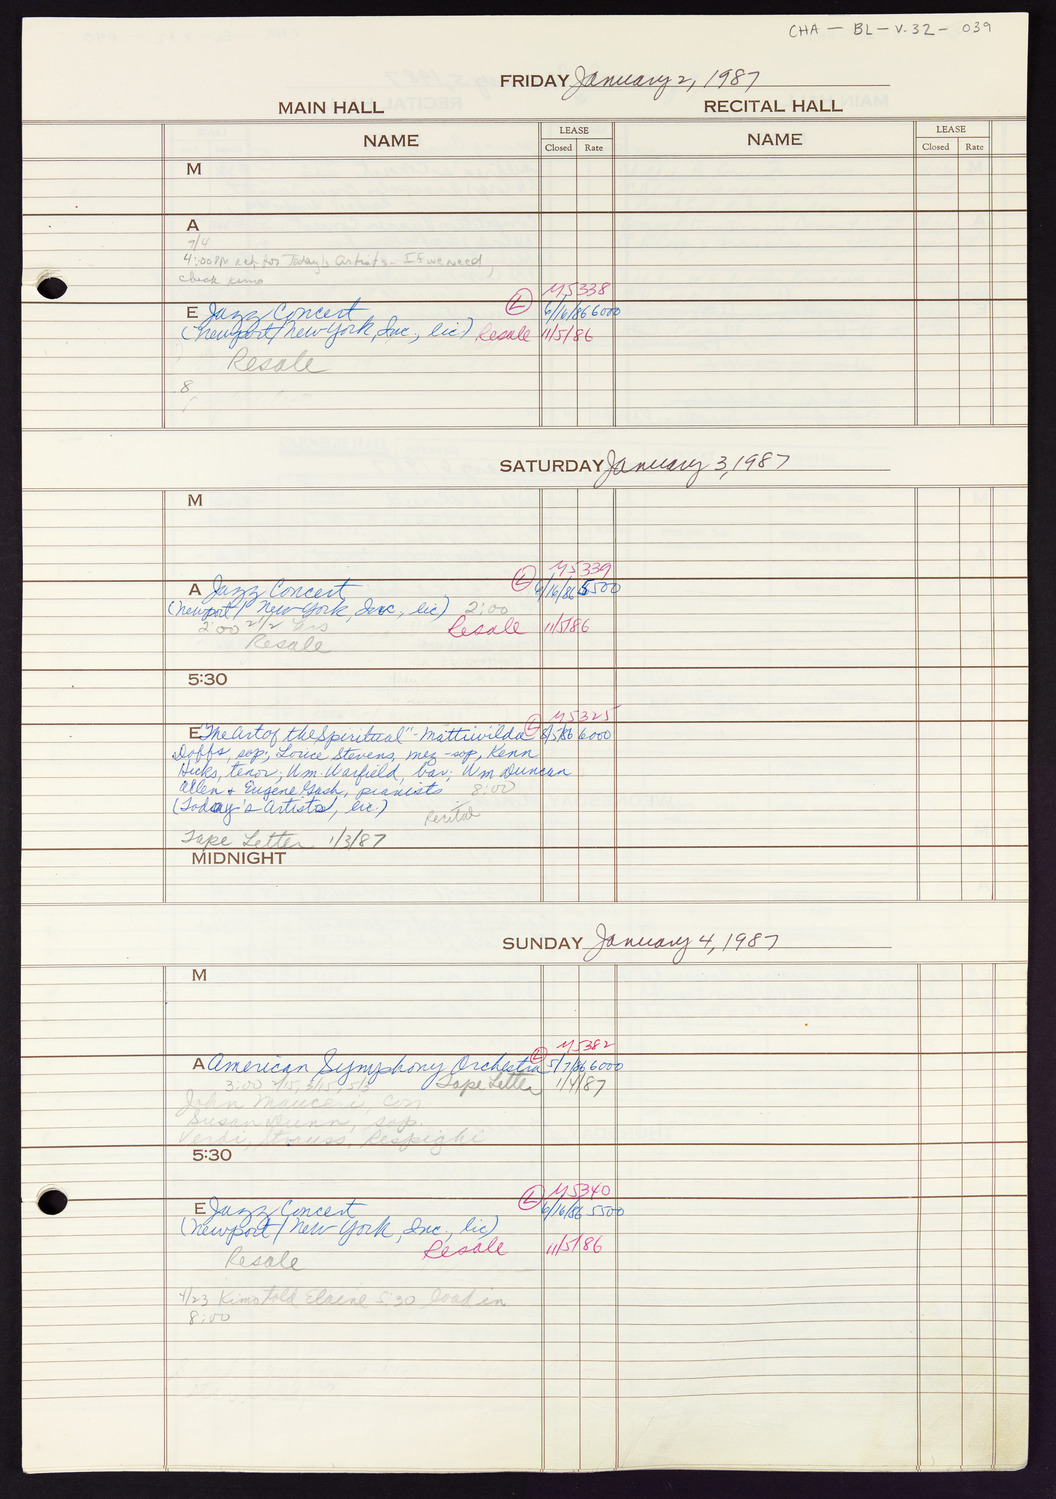 CHA - BL - V.32 - 039
FRIDAY January 2, 1987
MAIN HALL RECITAL HALL
NAME LEASE NAME LEASE
Closed Rate Closed Rate
M
A
7/4
4:00PM for Today's Artists - If we need,
check Kimo
M5338
E Jazz Concert L 6/16/86 6000
(Newport/New York, Inc., lic) Resale 11/5/86
Resale
8
SATURDAY January 3, 1987
M
M5339
A Jazz Concert L 6/16/86 5500
(Newport/New York, Inc., lic) 2:00
2:00 2 1/2 hrs Resale 11/5/86
Resale
5:30
M5325
E "The Art of the Spiritual" - Mattiwilda L 8/5/86 6000
Dobbs, sop; Louise Stevens, mez-sop, Kenn
Hicks, tenor; Wm. Warfield, bar; Wm Duncan
Allen + Eugene Gash, pianists 8:00
(Today's Artists, lic.) Recital
Tape Letter 1/3/87
MIDNIGHT
SUNDAY January 4, 1987
M
M5382
A American Symphony Orchestra L 5/7/86 6000
3:00 Tape Letter 1/4/87
John Mauceri, con
Susan Dunn, sop.
Verdi, Strauss, Respighi
5:30
M5340
E Jazz Concert L 6/16/86 5500
(Newport/New York, Inc., lic)
Resale Resale 11/5/86
4/23 Kimo told Elaine 5:30 load in
8:00